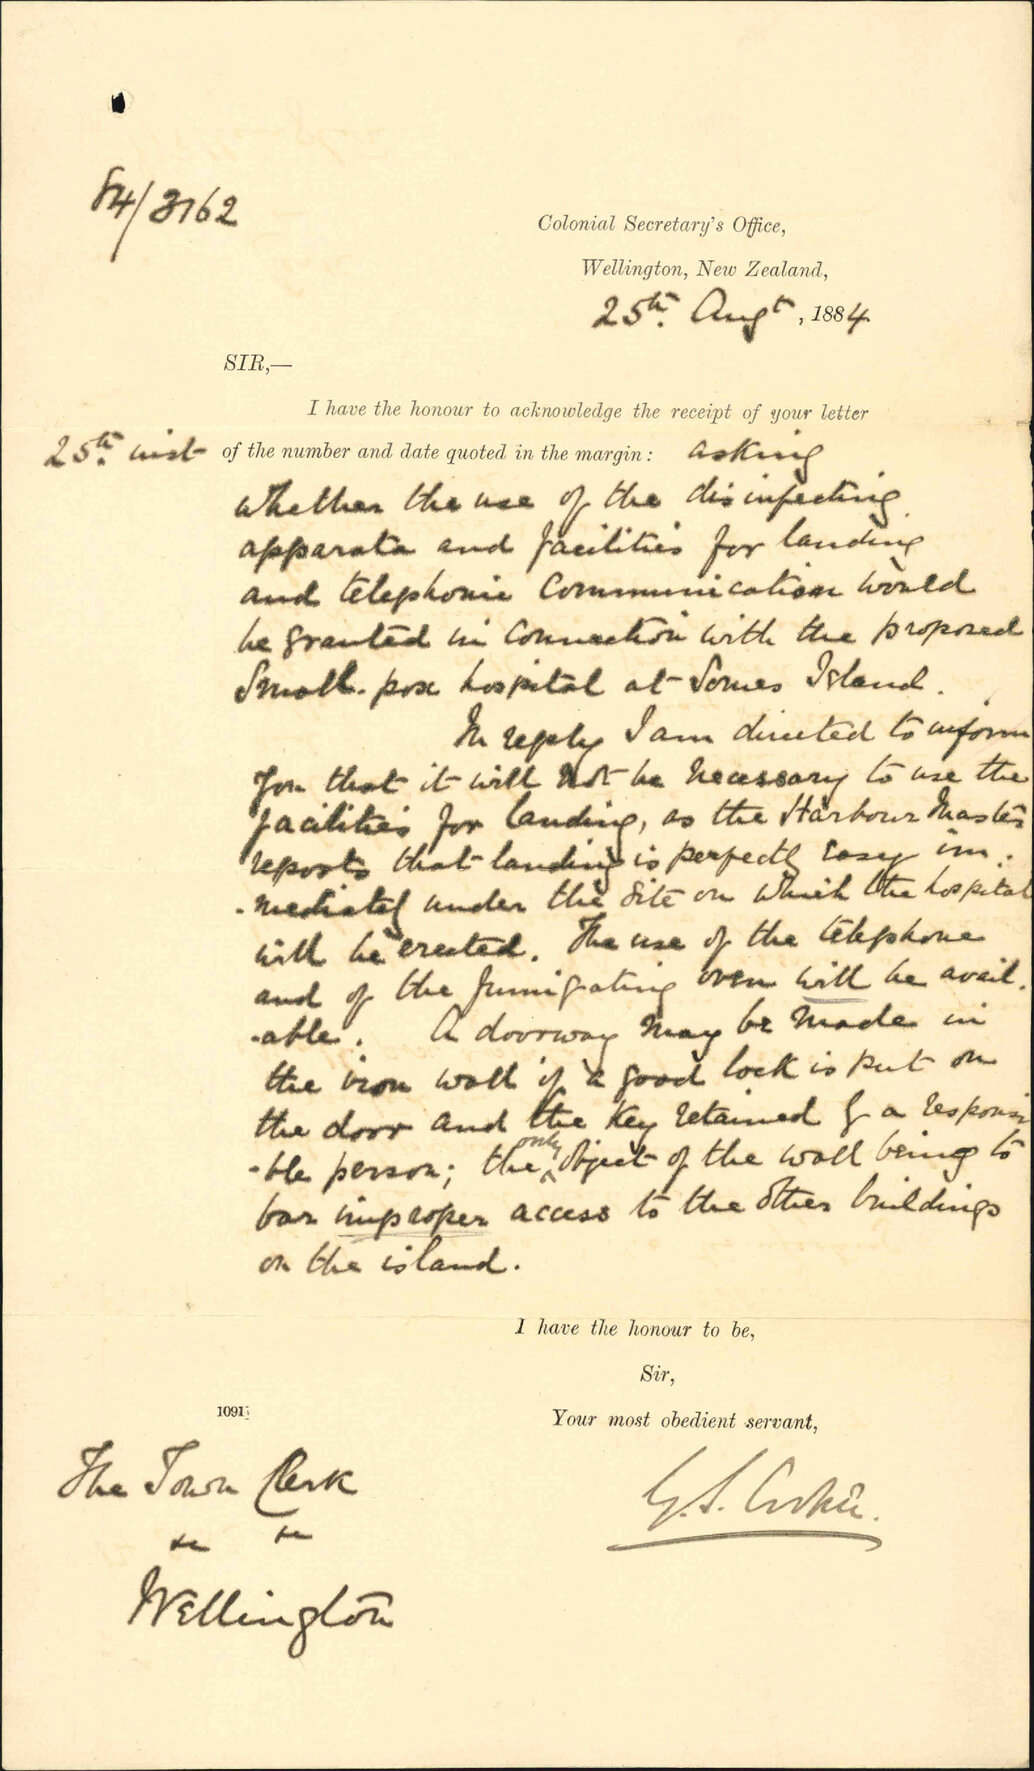 84/3162
Colonial Secretary's Office,
Wellington, New Zealand,
25th. Augt, 1884
SIR,—
I have the honour to acknowledge the receipt of your letter
25th. inst of the number and date quoted in the margin: asking
whether the use of the disinfecting
apparata and facilities for landing
and telephonic communication would
be granted in connection with the proposed
Small-pox hospital at Somes Island.
In reply I am directed to inform
you that it will not be necessary to use the
facilities for landing, as the Harbour Master
reports that landing is perfectly easy im-
-mediately under the site on which the hospital
will be erected. The use of the telephone
and of the fumigating oven will be avail-
-able. A doorway may be made in
the iron wall if a good lock is put on
the door and the key retained by a responsi
-ble person; the only object of the wall being to
bar improper access to the other buildings
on the island.
I have the honour to be,
Sir,
1091
Your most obedient servant,
G. S. Cooper.
The Town Clerk
Wellington